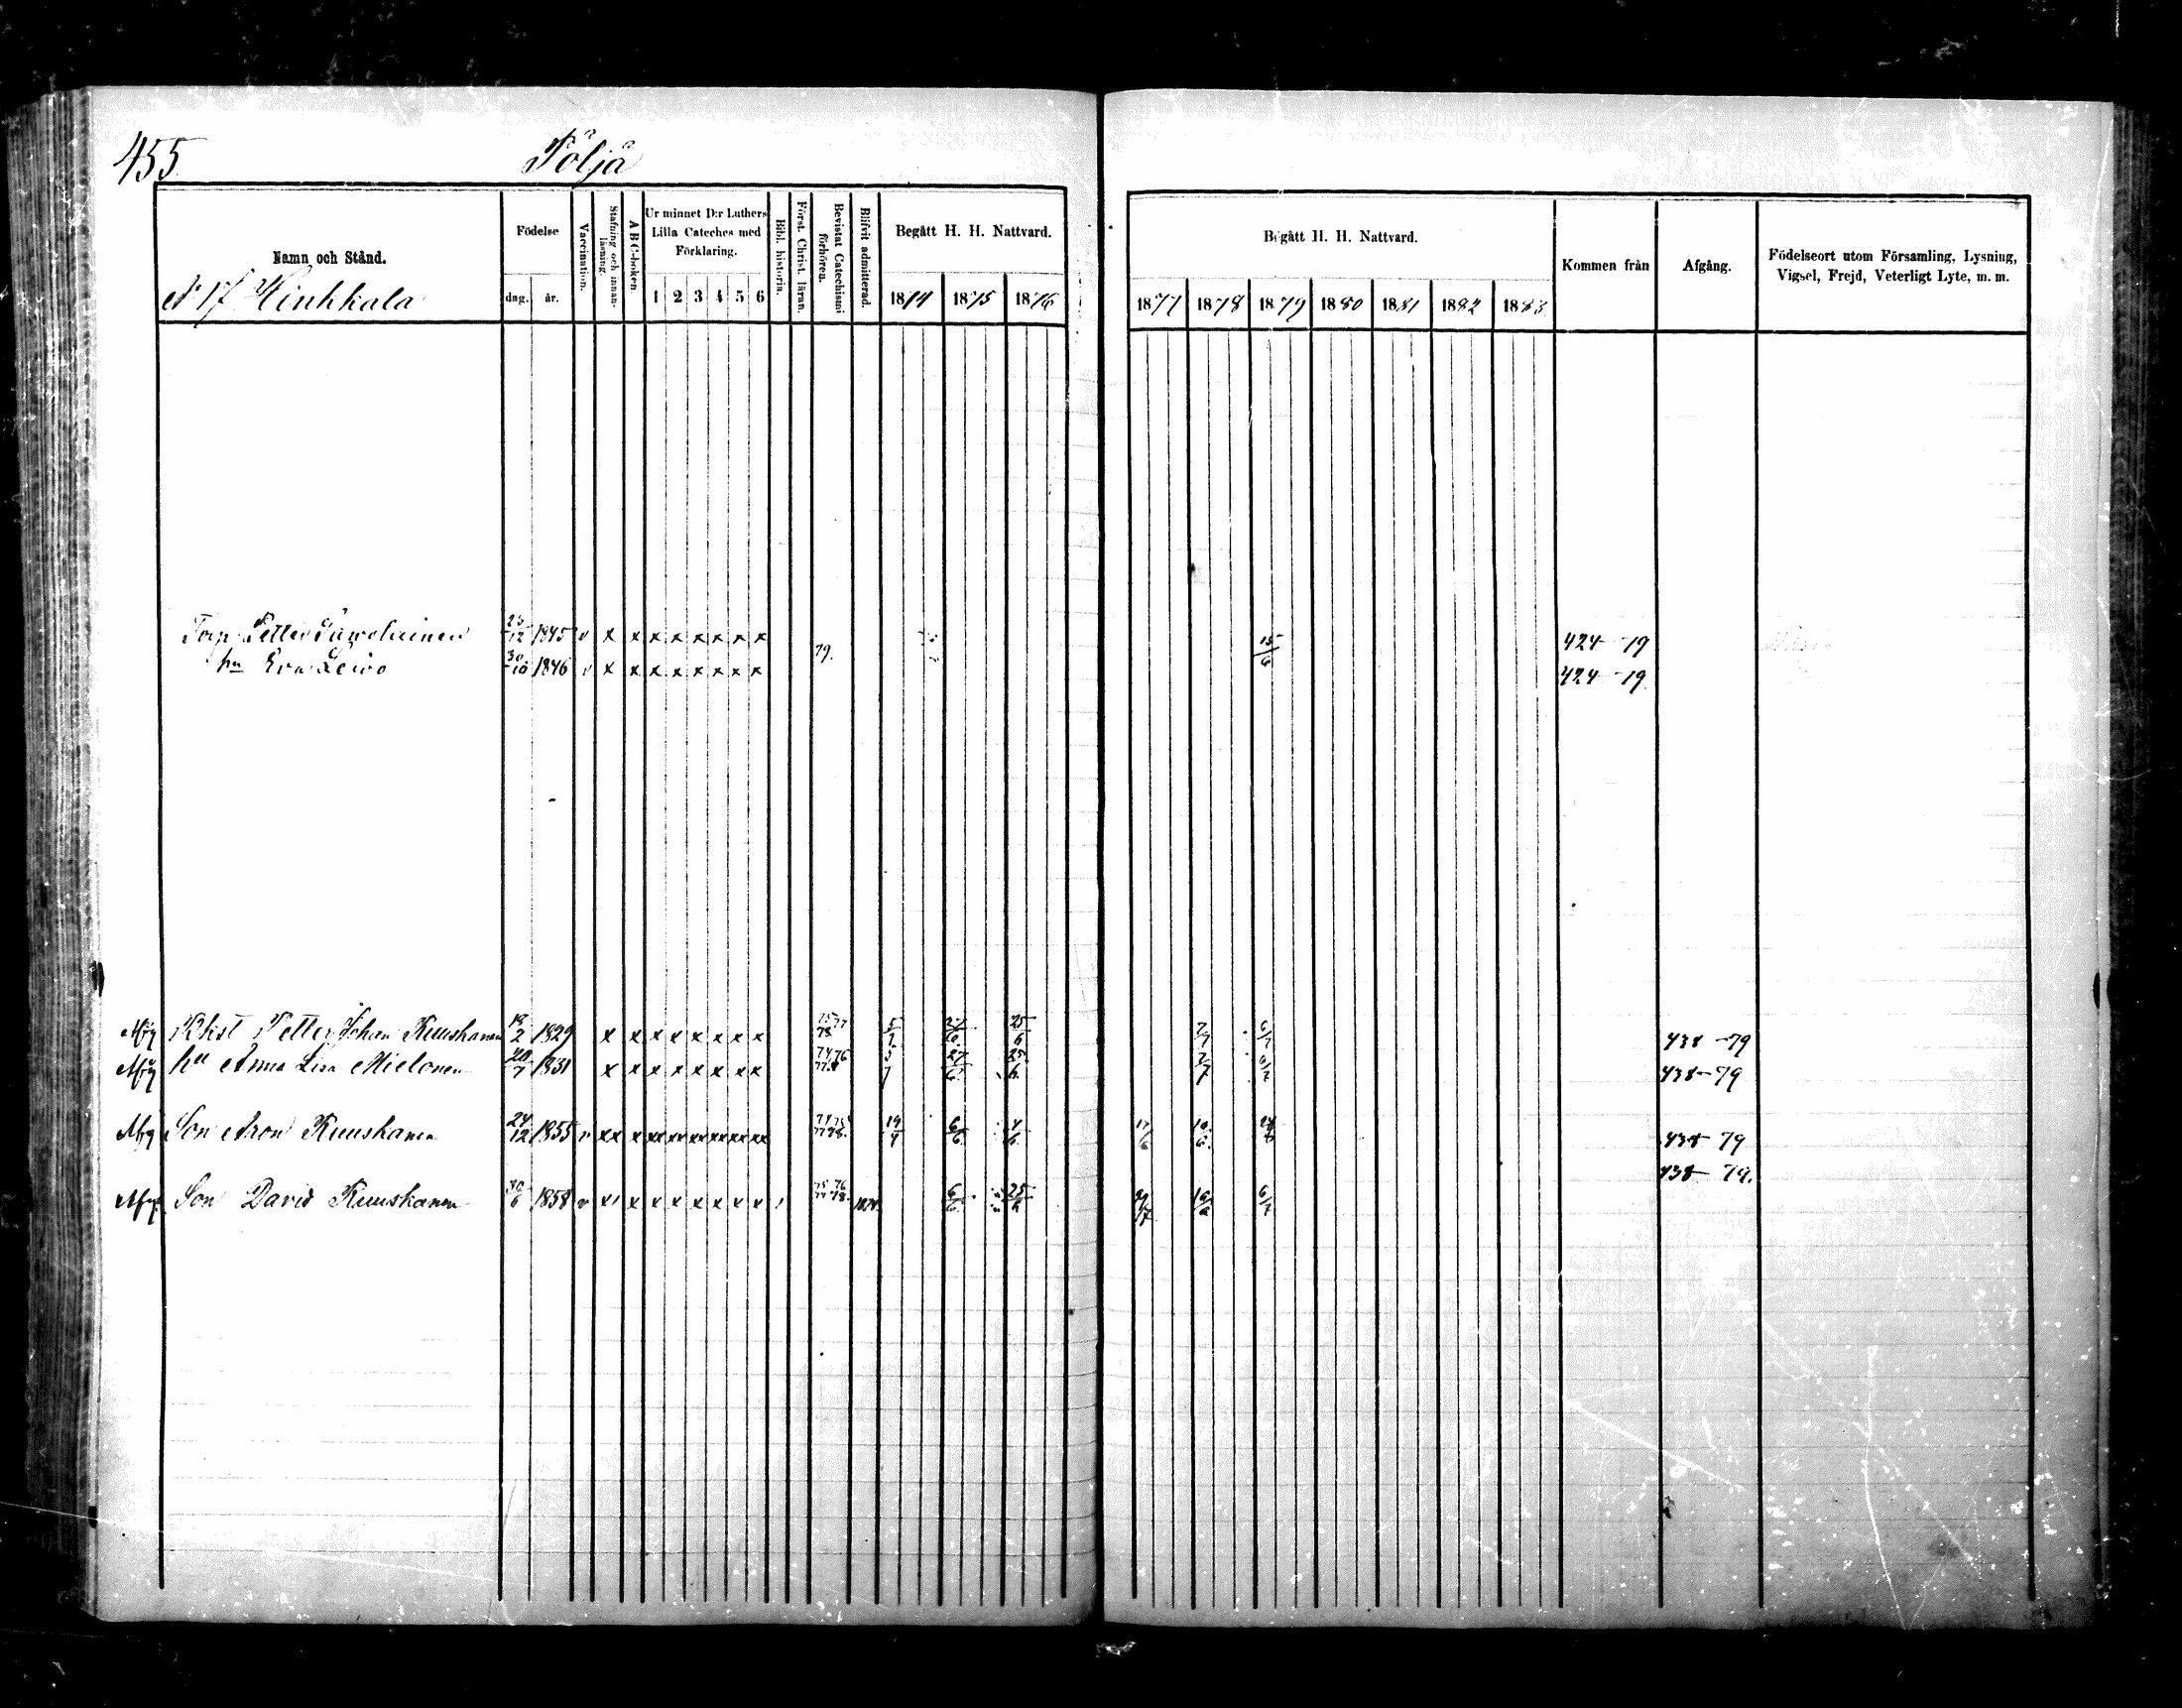 455
Pöljä
Namn och Stånd.
Födelse
dag. år.
Vaccination.
Stafning och innan-läsning.
ABC-boken.
Ur minnet D:r Luthers Lilla Cateches med Förklaring.
1 2 3 4 5 6
Bibl. historia.
Först. Christ. läran.
Bevistat Catechismi förhören.
Blifvit admitterad.
Begått H. H. Nattvard.
1874 1875 1876
Begått H. H. Nattvard.
1877 1878 1879 1880 1881 1882 1883
Kommen från
Afgång.
Födelseort utom Församling, Lysning, Vigsel, Frejd, Veterligt Lyte, m. m.
N 17 Hinkkala
Torp. Petter 12 1845 v x x x x x x x x 15/6 424 - 79
hu Eva Leivo 30/10 1846 v x x x x x x x x 79. 424 - 79
Petter Johan Ruuskanen 18/2 1829 x x x x x x x x 5/7 25/6 7/7 6/7 438 - 79
hu Anna Lisa Mielonen 20/7 1831 x x x x x x x x 5/7 27/6 25/6 7/7 438 - 79
Son Aron Ruuskanen 24/12 1855 v xx x xx xx xx xx xx xx 19/4 6/6 4/6 17/6 10/6 438 - 79
438 - 79.
Son David Ruuskanen 30/6 1858 v x x x x x x x 6/6 25/6 16/6 6/7